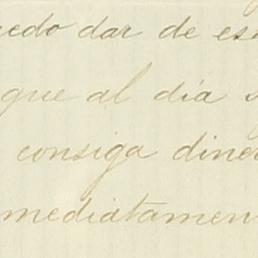 uedo dar de es
que al dia s
consiga diner
mediatamen